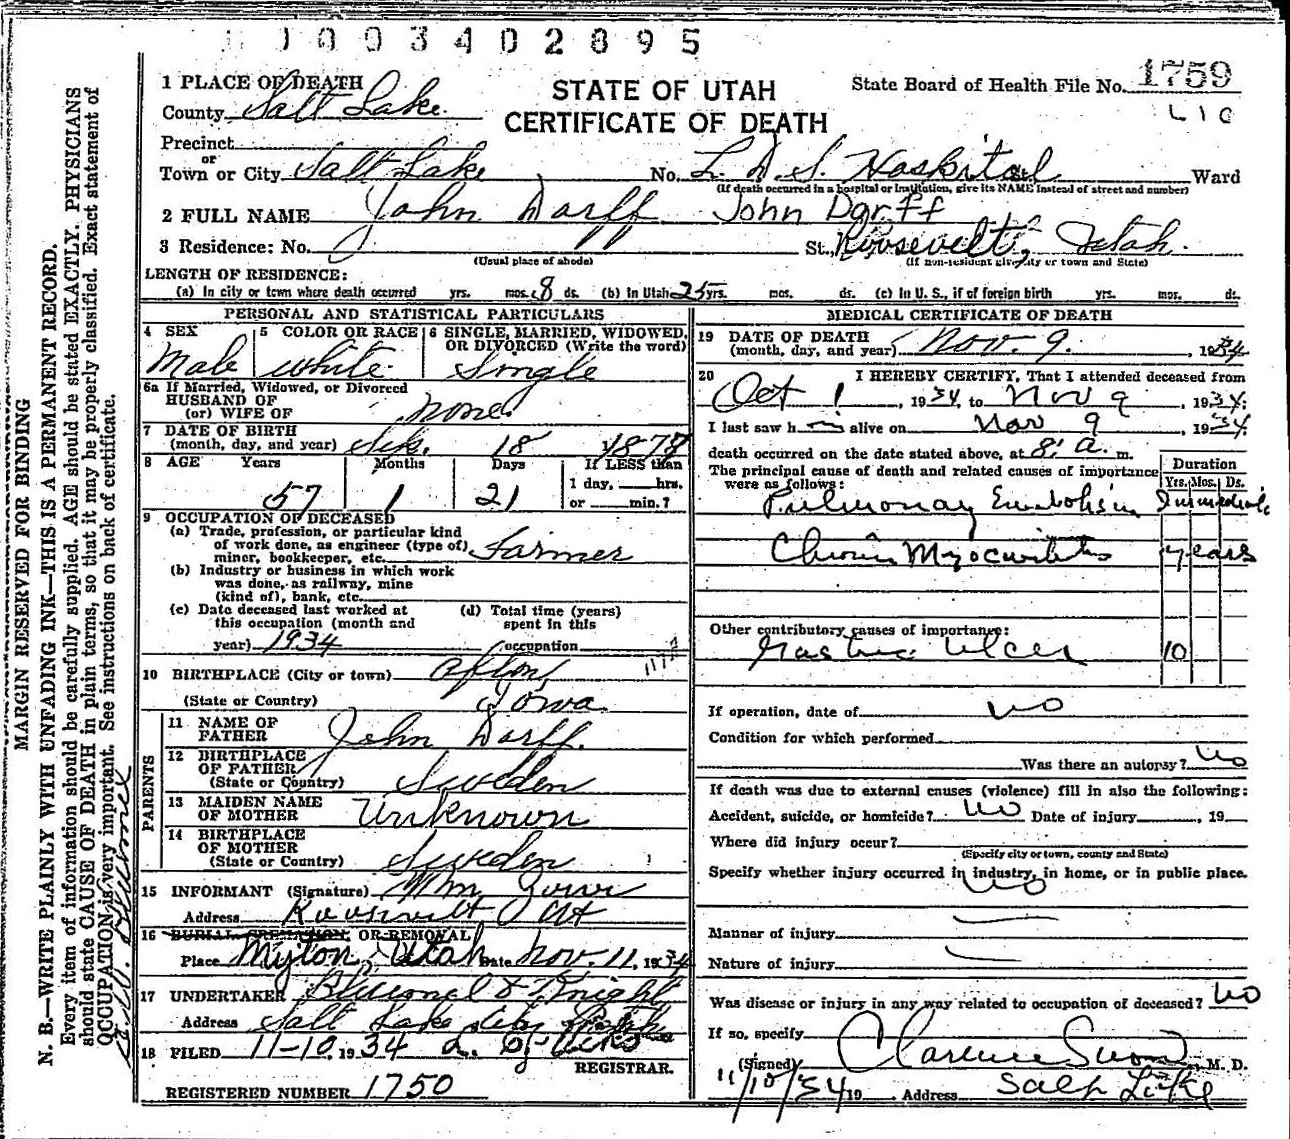 1 0 0 3 4 0 2 8 9 5
1 PLACE OF DEATH
STATE OF UTAH
CERTIFICATE OF DEATH
State Board of Health File No. 1759
L10
County Salt Lake
Precinct
or
Town or City Salt Lake No. L. D. S. Hospital Ward
(If death occurred in a hospital or institution, give its NAME instead of street and number)
2 FULL NAME John Dorff John Dorff
3 Residence: No. St., Roosevelt, Utah.
(Usual place of abode) (If non-resident give city or town and State)
LENGTH OF RESIDENCE:
(a) In city or town where death occurred yrs. mos. 8 ds. (b) In Utah 25 yrs. mos. ds. (c) In U. S., if of foreign birth yrs. mos. ds.
PERSONAL AND STATISTICAL PARTICULARS
4 SEX 5 COLOR OR RACE 6 SINGLE, MARRIED, WIDOWED, OR DIVORCED (Write the word)
Male white Single
6a If Married, Widowed, or Divorced
HUSBAND OF
(or) WIFE OF none
7 DATE OF BIRTH
(month, day, and year) 18
8 AGE Years Months Days If LESS than
1 day, hrs.
57 1 21 or min.?
9 OCCUPATION OF DECEASED
(a) Trade, profession, or particular kind
of work done, as engineer (type of)
miner, bookkeeper, etc. Farmer
(b) Industry or business in which work
was done, as railway, mine
(kind of), bank, etc.
(c) Date deceased last worked at
this occupation (month and
year) 1934
(d) Total time (years)
spent in this
occupation
10 BIRTHPLACE (City or town) Afton
(State or Country) Iowa
PARENTS
11 NAME OF
FATHER John Dorff.
12 BIRTHPLACE
OF FATHER
(State or Country) Sweden
13 MAIDEN NAME
OF MOTHER Unknown
14 BIRTHPLACE
OF MOTHER
(State or Country) Sweden
15 INFORMANT (Signature) Wm
Address Roosevelt Ut
16 BURIAL, CREMATION, OR REMOVAL
Place Myton, Utah Date Nov. 11, 1934
17 UNDERTAKER & Knight
Address Salt Lake City Utah
18 FILED 11-10, 1934
REGISTRAR.
REGISTERED NUMBER 1750
MEDICAL CERTIFICATE OF DEATH
19 DATE OF DEATH
(month, day, and year) Nov. 9. , 1934
20 I HEREBY CERTIFY, That I attended deceased from
Oct 1 , 1934, to Nov 9 , 1934;
I last saw h alive on Nov 9 , 1934
death occurred on the date stated above, at 8: a. m.
The principal cause of death and related causes of importance
were as follows:
Duration
Yrs. Mos. Ds.
Pulmonary Embolism Immediate
Chronic Myocarditis years
Other contributory causes of importance:
Gastric Ulcer 10
If operation, date of no
Condition for which performed
Was there an autopsy? no
If death was due to external causes (violence) fill in also the following:
Accident, suicide, or homicide? no Date of injury , 19
Where did injury occur?
(Specify city or town, county and State)
Specify whether injury occurred in industry, in home, or in public place.
no
Manner of injury
Nature of injury
Was disease or injury in any way related to occupation of deceased? no
If so, specify
(Signed) Clarence Snow M. D.
11/10/34 19 Address Salt Lake
MARGIN RESERVED FOR BINDING
N. B.—WRITE PLAINLY WITH UNFADING INK—THIS IS A PERMANENT RECORD.
Every item of information should be carefully supplied. AGE should be stated EXACTLY. PHYSICIANS
should state CAUSE OF DEATH in plain terms, so that it may be properly classified. Exact statement of
OCCUPATION is very important. See instructions on back of certificate.